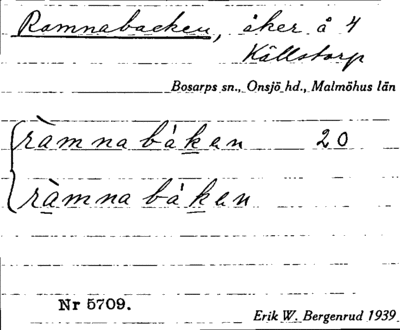 Ramnabacken, åker å 4
Källstorp
Bosarps sn., Onsjö hd., Malmöhus län
ràmnabáken 20
ràmnabáken
Nr 5709.
Erik W. Bergenrud 1939